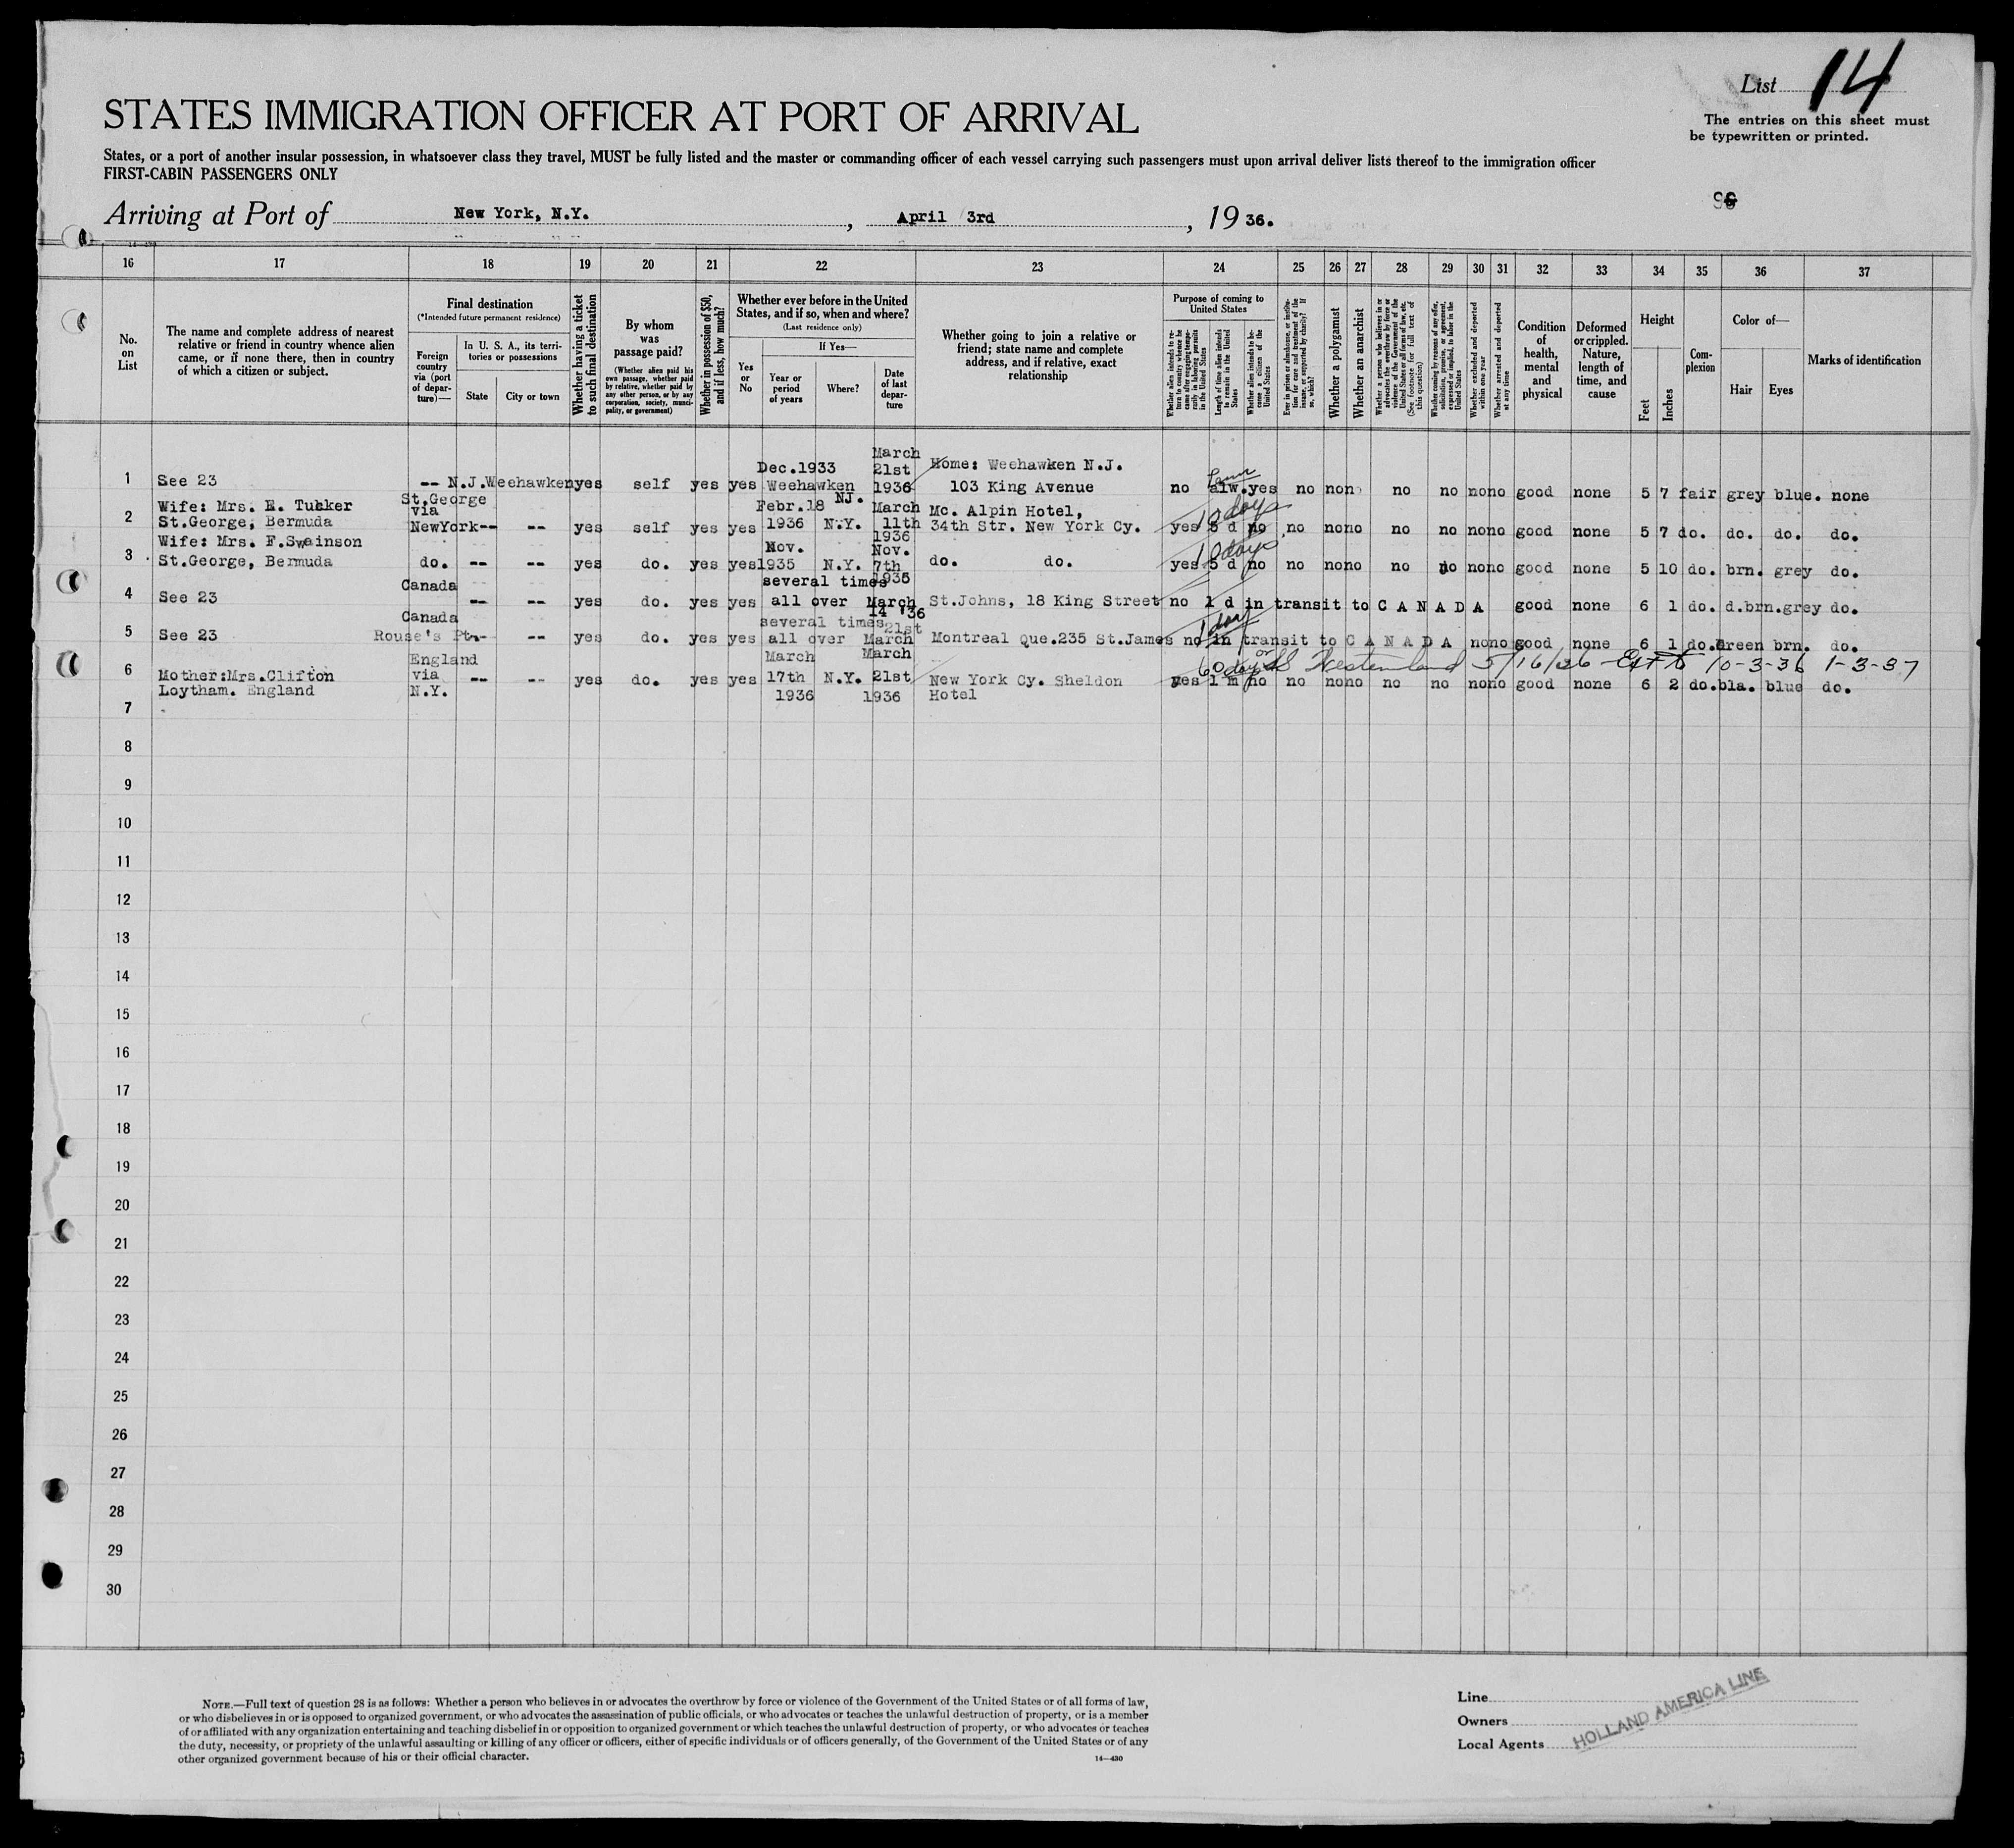 List 14
STATES IMMIGRATION OFFICER AT PORT OF ARRIVAL
The entries on this sheet must
be typewritten or printed.
States, or a port of another insular possession, in whatsoever class they travel, MUST be fully listed and the master or commanding officer of each vessel carrying such passengers must upon arrival deliver lists thereof to the immigration officer
FIRST-CABIN PASSENGERS ONLY
Arriving at Port of New York, N.Y. , April 3rd , 19 36.
16 17 18 19 20 21 22 23 24 25 26 27 28 29 30 31 32 33 34 35 36 37
No.
on
List
The name and complete address of nearest
relative or friend in country whence alien
came, or if none there, then in country
of which a citizen or subject.
Final destination
(*Intended future permanent residence)
Foreign
country
via (port
of depar-
ture)—
In U. S. A., its terri-
tories or possessions
State
City or town
Whether having a ticket
to such final destination
By whom
was
passage paid?
(Whether alien paid his
own passage, whether paid
by relative, whether paid by
any other person, or by any
corporation, society, munici-
pality, or government)
Whether in possession of $50,
and if less, how much?
Whether ever before in the United
States, and if so, when and where?
(Last residence only)
Yes
or
No
If Yes—
Year or
period
of years
Where?
Date
of last
depar-
ture
Whether going to join a relative or
friend; state name and complete
address, and if relative, exact
relationship
Purpose of coming to
United States
Whether alien intends to re-
turn to country whence he
came after engaging tempo-
rarily in laboring pursuits
in the United States
Length of time alien intends
to remain in the United
States
Whether alien intends to be-
come a citizen of the
United States
Ever in prison or almshouse, or institu-
tion for care and treatment of the
insane, or supported by charity? If
so, which?
Whether a polygamist
Whether an anarchist
Whether a person who believes in or
advocates the overthrow by force or
violence of the Government of the
United States or all forms of law, etc.
(See footnote for full text of
this question)
Whether coming by reasons of any offer,
solicitation, promise, or agreement,
expressed or implied, to labor in the
United States
Whether excluded and deported
within one year
Whether arrested and deported
at any time
Condition
of
health,
mental
and
physical
Deformed
or crippled.
Nature,
length of
time, and
cause
Height
Feet
Inches
Com-
plexion
Color of—
Hair
Eyes
Marks of identification
1 See 23 -- N.J. Weehawken yes self yes yes Dec.1933 Weehawken NJ. March 21st 1936 Home: Weehawken N.J. 103 King Avenue no alw. yes no no no no no no no good none 5 7 fair grey blue. none
2 Wife: Mrs. E. Tucker St.George, Bermuda St.George via NewYork -- -- yes self yes yes Febr.18 1936 N.Y. March 11th 1936 Mc. Alpin Hotel, 34th Str. New York Cy. yes 5 d 10 days no no no no no no no no good none 5 7 do. do. do. do.
3 Wife: Mrs. F.Swainson St.George, Bermuda do. -- -- yes do. yes yes Nov. 1935 N.Y. Nov. 7th 1935 do. do. yes 5 d 10 days no no no no no no no no good none 5 10 do. brn. grey do.
4 See 23 Canada -- -- yes do. yes yes several times all over March 14 '36 St.Johns, 18 King Street no 1 d in transit to C A N A D A good none 6 1 do. d.brn. grey do.
5 See 23 Canada Rouse's Pt. -- -- yes do. yes yes several times all over 21st March Montreal Que.235 St.James no 1 day in transit to C A N A D A no no good none 6 1 do. Green brn. do.
6 Mother:Mrs.Clifton Loytham. England England via N.Y. -- -- yes do. yes yes March 17th 1936 N.Y. March 21st 1936 New York Cy. Sheldon Hotel yes 1 m 60 days no no no no no no no no good none 6 2 do. bla. blue do.
or SS Westernland 5/16/36 - Ext to 10-3-36 1-3-37
7
8
9
10
11
12
13
14
15
16
17
18
19
20
21
22
23
24
25
26
27
28
29
30
NOTE.—Full text of question 28 is as follows: Whether a person who believes in or advocates the overthrow by force or violence of the Government of the United States or of all forms of law,
or who disbelieves in or is opposed to organized government, or who advocates the assassination of public officials, or who advocates or teaches the unlawful destruction of property, or is a member
of or affiliated with any organization entertaining and teaching disbelief in or opposition to organized government or which teaches the unlawful destruction of property, or who advocates or teaches
the duty, necessity, or propriety of the unlawful assaulting or killing of any officer or officers, either of specific individuals or of officers generally, of the Government of the United States or of any
other organized government because of his or their official character.
14—430
Line
Owners
Local Agents
HOLLAND AMERICA LINE